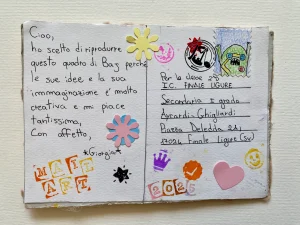 Ciao,
ho scelto di riprodurre
questo quadro di Baj perché
le sue idee e la sua
immaginazione e' molto
creativa e mi piace
tantissima,
Con affetto,
*Giorgia*
MAIL
ART
Per la classe 2D
I.C. FINALE LIGURE
Secondaria I grado
Aycardi-Ghigliardi
Piazza Deledda 21,
17024 Finale Ligure (SV)
2025